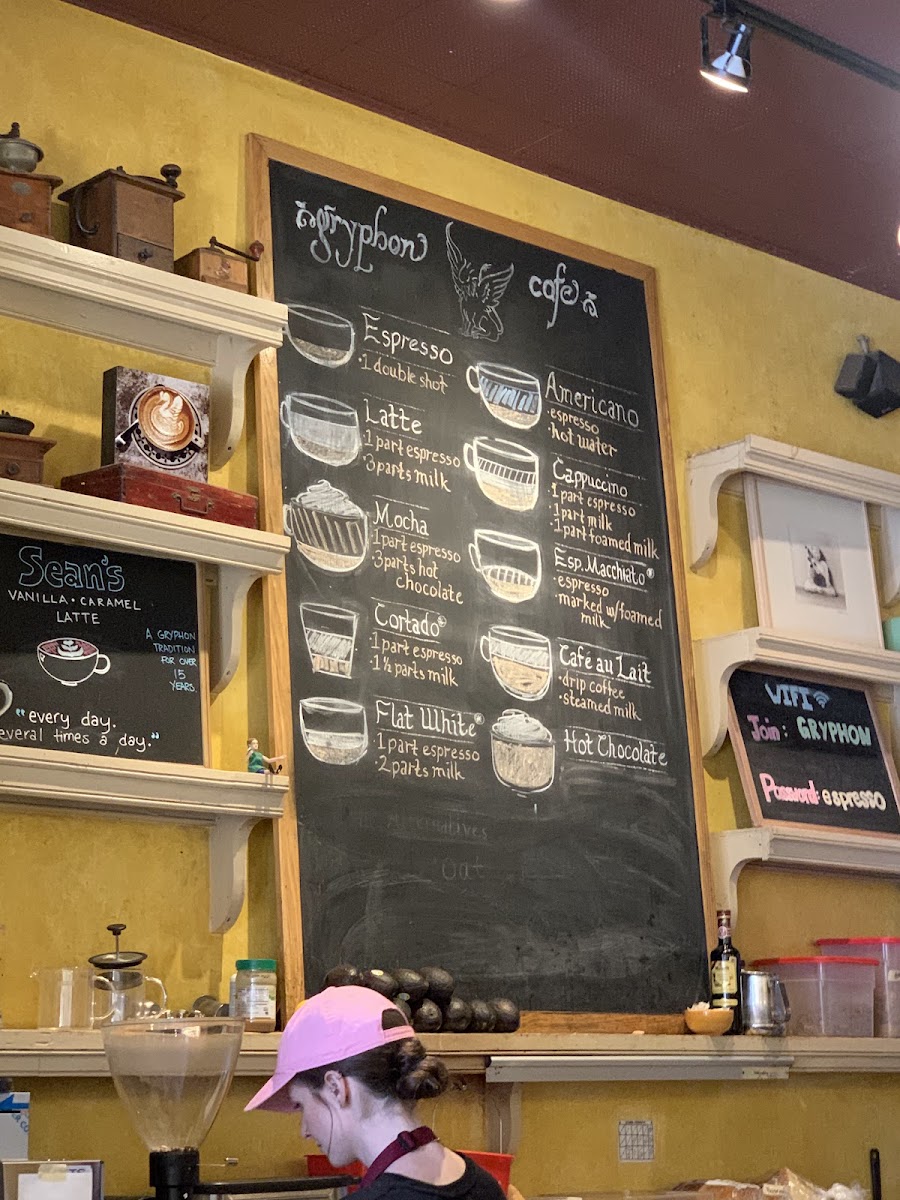 gryphon cafe
Espresso
·1 double shot
Latte
·1 part espresso
·3 parts milk
Mocha
·1 part espresso
·3 parts hot
chocolate
Cortado
·1 part espresso
·1 ½ parts milk
Flat White
·1 part espresso
·2 parts milk
Americano
·espresso
·hot water
Cappuccino
·1 part espresso
·1 part milk
·1 part foamed milk
Esp. Macchiato
·espresso
·marked w/foamed
milk
Café au Lait
·drip coffee
·steamed milk
Hot Chocolate
alternatives
oat
Sean's
VANILLA · CARAMEL
LATTE
A GRYPHON
TRADITION
FOR OVER
15
YEARS.
"every day.
several times a day."
WIFI
Join: GRYPHON
Password: espresso